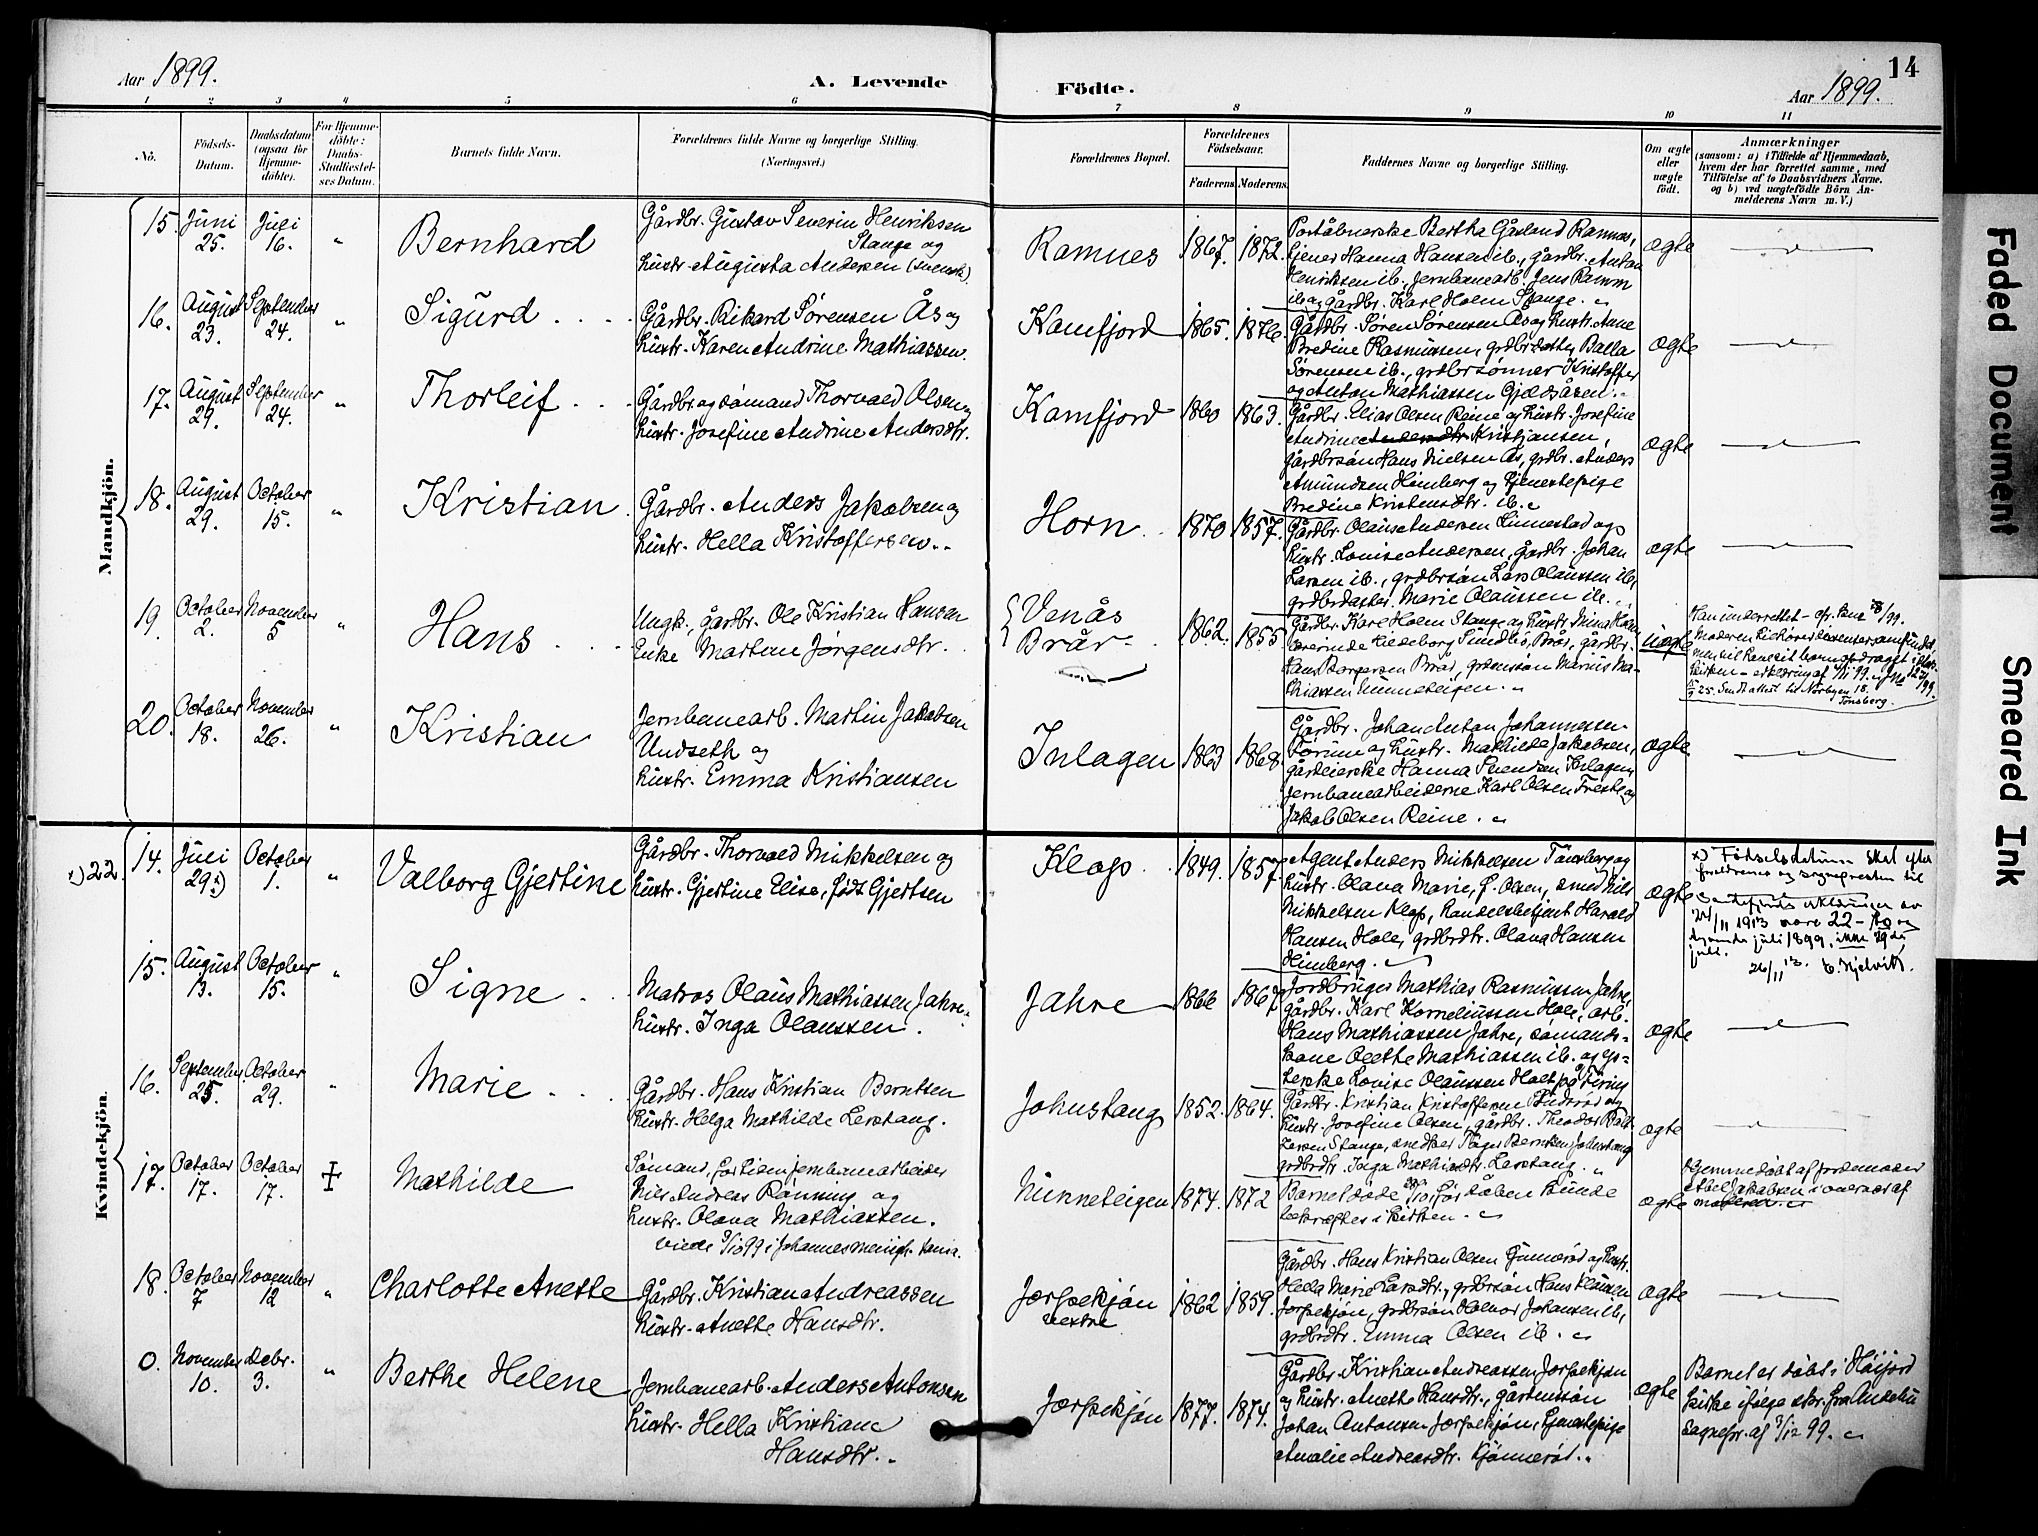 Aar 1899.
A. Levende
Födte.
Aar 1899.
14
1 2 3 4 5 6 7 8 9 10 11
No.
Födsels-
Datum.
Daabsdatum
(ogsaa for
Hjemme-
döbte).
For Hjemme-
döbte:
Daabs-
Stadfæstel-
ses Datum.
Barnets fulde Navn.
Forældrenes fulde Navne og borgerlige Stilling.
(Næringsvei.)
Forældrenes Bopæl.
Forældrenes
Födselsaar.
Faderens. Moderens.
Faddernes Navne og borgerlige Stilling.
Om ægte
eller
uægte
födt.
Anmærkninger
(saasom: a) i Tilfælde af Hjemmedaab,
hvem der har forrettet samme, med
Tilföielse af to Daabsvidners Navne.
og b) ved uægtefödte Börn An-
melderens Navn m. V.)
Mandkjön.
15. Juni
25.
Juli
16.
"
Bernhard
Gårdbr. Gustav Severin Henriksen
Stange og
hustr. Augusta Andersen (svensk).
Ramnes
1867. 1872.
Poståbnerske Bertha Gåsland Ramnes,
tjener Hanna Hansen ib., gårdbr. Anton
Henriksen ib., jernbanearb. Jens Ramm
ib. og gårdbr. Karl Holm Stange.
ægte
16. August
23.
September
24.
"
Sigurd
Gårdbr. Rikard Sørensen Ås og
hustr. Karen Andrine Mathiassen.
Kamfjord
1865. 1876.
Gårdbr. Søren Sørensen Ås og hustr. Anne
Bredine Rasmussen, grdbrdatter Balla
Sørensen ib., grdbrsønner Kristoffer
og Anton Mathiassen Gjelsåsen.
ægte
17. August
29.
September
24.
"
Thorleif
Gårdbr. og sømand Thorvald Olsen og
hustr. Josefine Andrine Andersdtr.
Kamfjord
1860 1863.
Gårdbr. Elias Olsen Reine og hustr. Josefine
Andrine Andersdtr. Kristjansen,
gårdbrsøn Hans Nielsen Ås, grdbr. Anders
Amundsen Himberg og tjenestepige
Bredine Kristensdtr. ib.
ægte
18. August
29.
October
15.
"
Kristian
Gårdbr. Anders Jakobsen og
hustr. Hella Kristoffersen.
Horn
1870 1857.
Gårdbr. Olaus Andersen Linnestad og
hustr. Lovise Andersen, gårdbr. Johan
Larsen ib., grdbrsøn Lars Olaussen ib.,
grdbrdatter Marie Olaussen ib.
ægte
19. October
2.
November
5
"
Hans
Ungk., gårdbr. Ole Kristian Hansen
Enke Martine Jørgensdtr.
Venås
Brår
1862. 1855
Gårdbr. Karl Holm Stange og hustr. Mina Holm,
lærerinde Liedeborg Sundbø, Brår, gårdbr.
Hans Borgersen Brår, grdmsøn Marius Ma-
thiassen Linneteigen.
uægte
Tønsberg.
20. October
18.
November
26.
"
Kristian
Jernbanearb. Martin Jakobsen
Undseth og
hustr. Emma Kristiansen
Inlagen
1863 1868.
Gårdbr. Johan Anton Johannessen
Forum og hustr. Mathilde Jakobsen,
gårdeierske Hanna Svendsen Inlagen,
jernbanearbeiderne Karl Olsen Freste og
Jakob Olsen Reine.
ægte
Kvindekjön.
x) 22. 14. Juli
29 x)
October
1.
"
Valborg Gjertine
Gårdbr. Thorvald Mikkelsen og
hustr. Gjertine Elise, født Gjertsen
Klop
1849. 1857.
Agent Anders Mikkelsen Tønsberg og
hustr. Olava Marie, f. Olsen, smed Nils
Mikkelsen Klop, Handelsbetjent Harald
Hansen Hole, grdbrdtr. Olava Hansen
Himberg.
ægte
x) Fødselsdatum skal efter
forældrenes og sognepresten til
Sandefjords erklæringer av
24/11 1913 være 22 – to og
tyvende juli 1899, ikke 29de
juli.
26/11 13. E. Kjelvik.
15. August
13.
October
15.
"
Signe
Matros Olaus Mathiassen Jahre
hustr. Inga Olaussen.
Jahre
1866 1867
Jordbruger Mathias Rasmussen Jahre,
gårdbr. Karl Korneliussen Hole, arb.
Hans Mathiassen Jahre, sømands-
kone Olette Mathiassen ib. og sy-
erske Lovise Olaussen Holt
ægte
16. September
25.
October
29.
"
Marie
Gårdbr. Hans Kristian Berntsen
hustr. Helga Mathilde Lerstang.
Johnstang
1852. 1864.
Gårdbr. Kristian Kristoffersen Fudrød og
hustr. Josefine Olsen, gårdbr. Theodor Balt-
zersen Stange, snedker Tåger Berntsen Johnstang
grdbrdtr. Inga Mathisdtr. Lerstang.
ægte
17. October
17.
October
17.
+
Mathilde
Sømand, for tiden jernbanearbeider
Nils Andreas Rønning og
hustr. Olava Mathiassen.
viede 9/10 99 i Johannes menigh. Kania.
Linneteigen
1874. 1872
Barnet døde 20/10, før dåben kunde
bekræftes i kirken.
ægte
Hjemmedøbt af jordemoder
Abel Jakobsen i overvær af
moderen.
18. October
7
November
12
"
Charlotte Anette
Gårdbr. Kristian Andreassen
hustr. Anette Hansdtr.
Jerpekjøn
vestre
1862 1859.
Gårdbr. Hans Kristian Olsen Gunnerød og hustr.
Hella Marie Larsdtr., grdbrsøn Hans Klausen
Jerpekjøn, grdbrsøn Halvor Johansen ib.,
grdbrdtr. Emma Olsen ib.
ægte
0. November
10.
Debr.
3.
"
Berthe Helene
Jernbanearb. Anders Antonsen
hustr. Hella Kristiane
Hansdtr.
Jerpekjøn
1877. 1874.
Gårdbr. Kristian Andreassen Jerpekjøn
og hustr. Anette Hansdtr., gårdmssøn
Johan Antonsen Jerpekjøn, tjenestepige
Amalie Andreasdtr. Kjønnerød.
ægte
Barnet er døbt i Høijord
kirke ifølge skr. fra Andebu
sognepr. af 3/12 99.
Faded Document
Smeared Ink